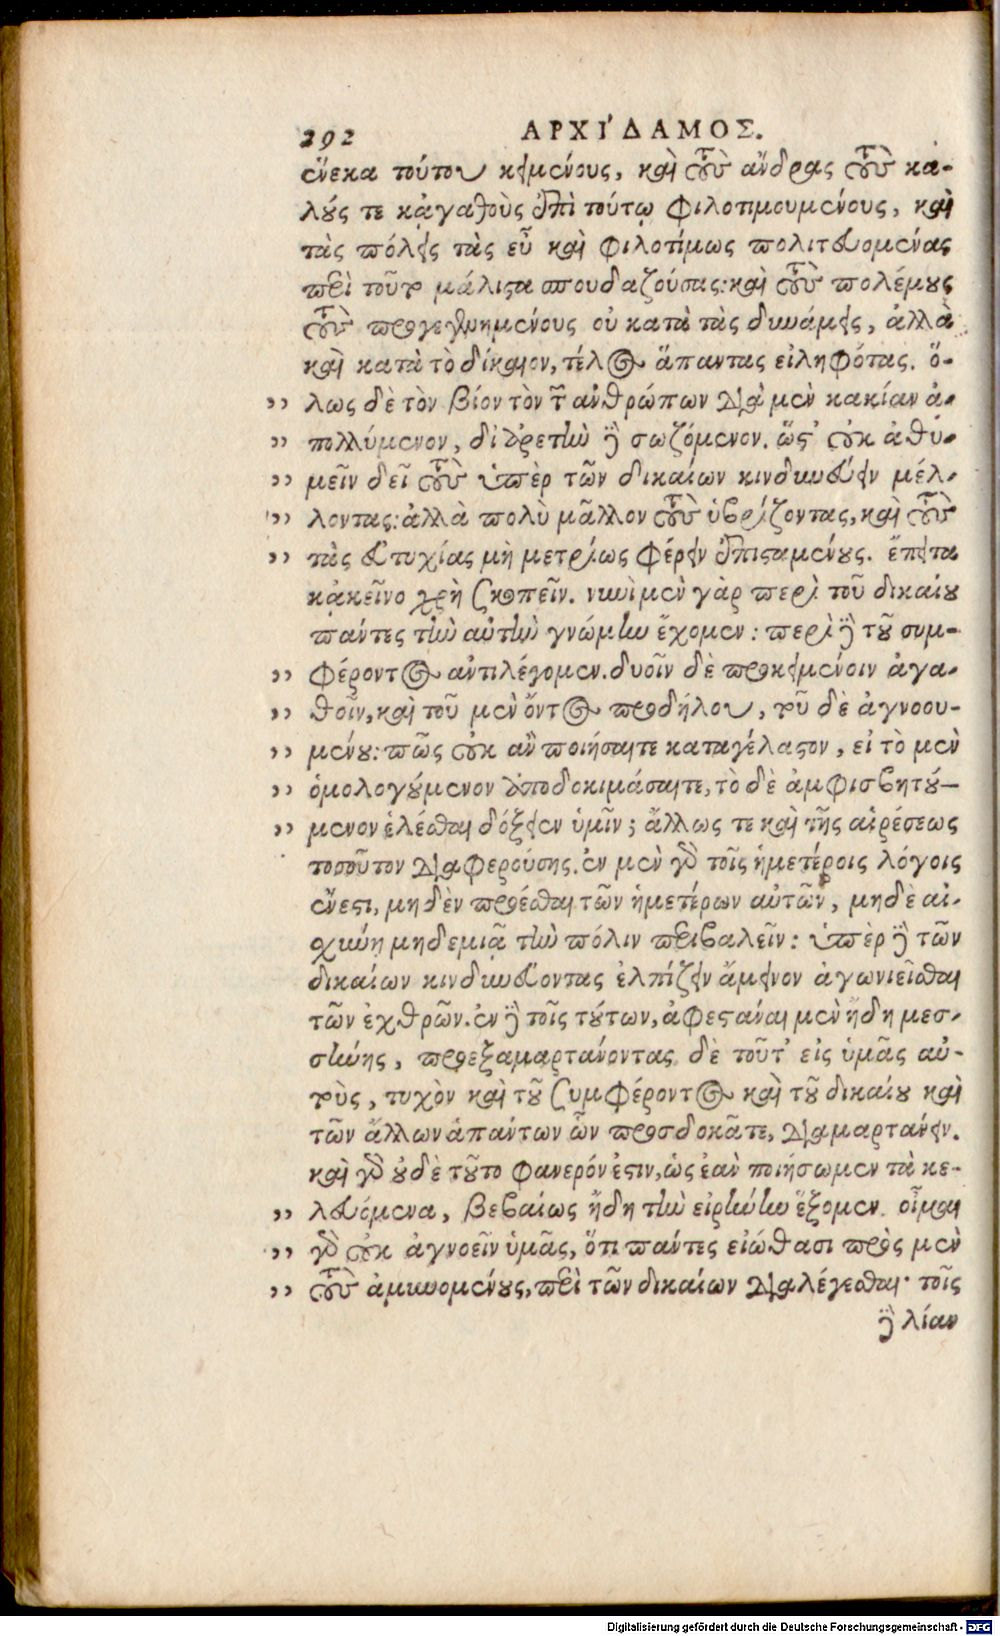 292 ΑΡΧΙ´ΔΑΜΟΣ.
ἕνεκα τούτου κειμένους, καὶ τοὺς ἄνδρας τοὺς κα-
λούς τε κἀγαθοὺς ἐπὶ τούτῳ φιλοτιμουμένους, καὶ
τὰς πόλεις τὰς εὖ καὶ φιλοτίμως πολιτευομένας
περὶ τούτου μάλιστα σπουδαζούσας: καὶ τοὺς πολέμους
τοὺς προγεγενημένους οὐ κατὰ τὰς δυνάμεις, ἀλλὰ
καὶ κατὰ τὸ δίκαιον, τέλος ἅπαντας εἰληφότας. ὅ-
,, λως δὲ τὸν βίον τὸν τῶν ἀνθρώπων διὰ μὲν κακίαν ἀ-
,, πολλύμενον, δι' ἀρετὴν δὲ σωζόμενον. ὥστ' οὐκ ἀθυ-
,, μεῖν δεῖ τοὺς ὑπὲρ τῶν δικαίων κινδυνεύειν μέλ-
,, λοντας: ἀλλὰ πολὺ μᾶλλον τοὺς ὑβρίζοντας, καὶ τοὺς
,, τὰς εὐτυχίας μὴ μετρίως φέρειν ἐπισταμένους. ἔπειτα
κἀκεῖνο χρὴ σκοπεῖν. νυνὶ μὲν γὰρ περὶ τοῦ δικαίου
πάντες τὴν αὐτὴν γνώμην ἔχομεν: περὶ δὲ τοῦ συμ-
,, φέροντος ἀντιλέγομεν. δυοῖν δὲ προκειμένοιν ἀγα-
,, θοῖν, καὶ τοῦ μὲν ὄντος προδήλου, τοῦ δὲ ἀγνοου-
,, μένου: πῶς οὐκ ἂν ποιήσαιτε καταγέλαστον, εἰ τὸ μὲν
,, ὁμολογούμενον ἀποδοκιμάσαιτε, τὸ δὲ ἀμφισβητού-
,, μενον ἑλέσθαι δόξειεν ὑμῖν; ἄλλως τε καὶ τῆς αἱρέσεως
τοσοῦτον διαφερούσης. ἐν μὲν γὰρ τοῖς ἡμετέροις λόγοις
ἔνεστι, μηδὲν προέσθαι τῶν ἡμετέρων αὐτῶν, μηδὲ αἰ-
σχύνῃ μηδεμιᾷ τὴν πόλιν περιβαλεῖν: ὑπὲρ δὲ τῶν
δικαίων κινδυνεύοντας ἐλπίζειν ἄμεινον ἀγωνιεῖσθαι
τῶν ἐχθρῶν. ἐν δὲ τοῖς τούτων, ἀφεστάναι μὲν ἤδη μεσ-
σήνης, προεξαμαρτάνοντας δὲ τοῦτ' εἰς ὑμᾶς αὐ-
τοὺς, τυχὸν καὶ τοῦ συμφέροντος καὶ τοῦ δικαίου καὶ
τῶν ἄλλων ἁπάντων ὧν προσδοκᾶτε, διαμαρτάνειν.
καὶ γὰρ οὐδὲ τοῦτο φανερόν ἐστιν, ὡς ἐὰν ποιήσωμεν τὰ κε-
,, λευόμενα, βεβαίως ἤδη τὴν εἰρήνην ἕξομεν. οἶμαι
,, γὰρ οὐκ ἀγνοεῖν ὑμᾶς, ὅτι πάντες εἰώθασι πρὸς μὲν
,, τοὺς ἀμυνομένους, περὶ τῶν δικαίων διαλέγεσθαι· τοῖς
δὲ λίαν
Digitalisierung gefördert durch die Deutsche Forschungsgemeinschaft - DFG